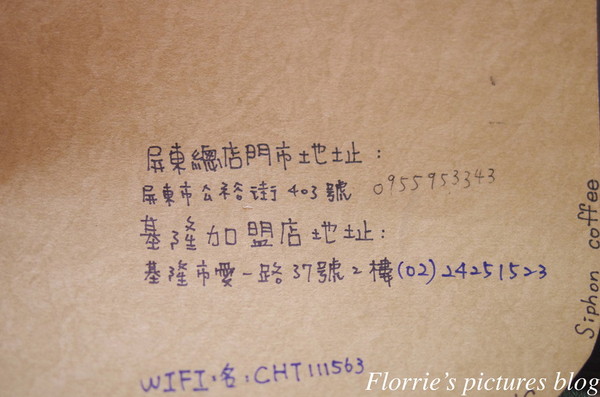 屏東總店門市地址:
屏東市公裕街403號 0955953343
基隆加盟店地址:
基隆市愛一路37號2樓(02)24251523
WIFI:名:CHT111563
Siphon coffee
Florrie's pictures blog